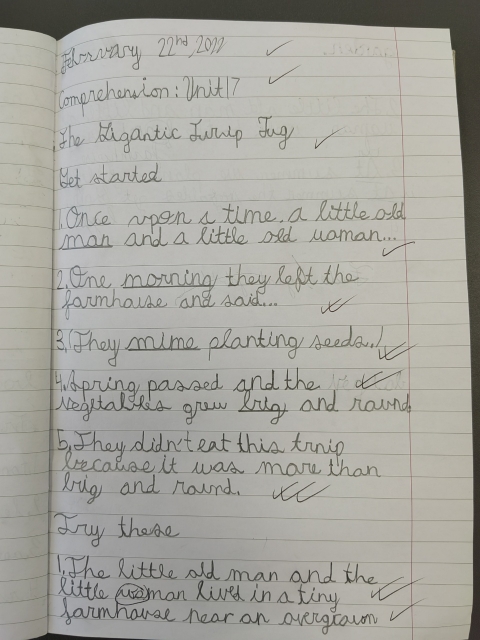 February 22nd, 2022
Comprehension: Unit 17
The Gigantic Turnip Tug
Get started
1. Once upon a time, a little old
man and a little old uoman...
2. One morning they left the
farmhouse and said...
3. (They mime planting seeds.)
4. Spring passed and the
vegetables grew brig and round.
5. They didn't eat this trnip
because it was more than
brig and round.
Try these
1. The little old man and the
little woman lived in a tiny
farmhouse near an overgrown